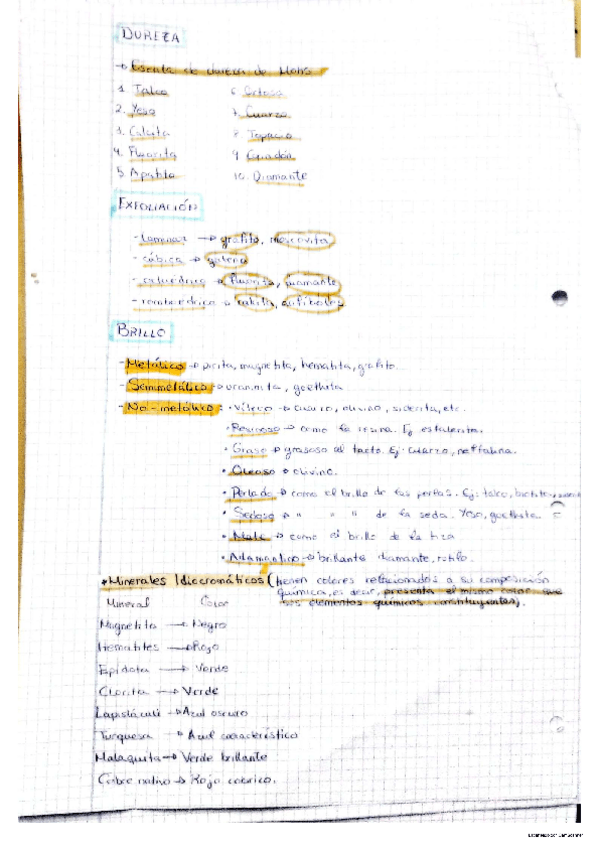 DUREZA
→ Escala de dureza de Mohs
1. Talco 6. Ortosa
2. Yeso 7. Cuarzo
3. Calcita 8. Topacio
4. Fluorita 9. Corindón
5. Apatito 10. Diamante
EXFOLIACIÓN
- Laminar → grafito, moscovita
- cúbica → galena
- octaédrica → fluorita, diamante
- romboédrica → calcita, anfíboles
BRILLO
- Metálico → pirita, magnetita, hematita, grafito...
- Semimetálico → uraninita, goethita
- No-metálico: • Vítreo → cuarzo, olivino, siderita, etc.
• Resinoso → como la resina. Ej esfalerita.
• Graso → grasoso al tacto. Ej: cuarzo, nefelina.
• Oleoso → olivino.
• Perlado → como el brillo de las perlas. Ej: talco, biotita,
• Sedoso → " " " de la seda. Yeso, goethita
• Mate → como el brillo de la tiza
• Adamantino → brillante diamante, rutilo.
* Minerales Idiocromáticos (tienen colores relacionados a su composición
química, es decir, presenta el mismo color que
sus elementos químicos constituyentes).
Mineral Color
Magnetita → Negro
Hematites → Rojo
Epidota → Verde
Clorita → Verde
Lapislázuli → Azul oscuro
Turquesa → Azul característico
Malaquita → Verde brillante
Cobre nativo → Rojo cobrizo.